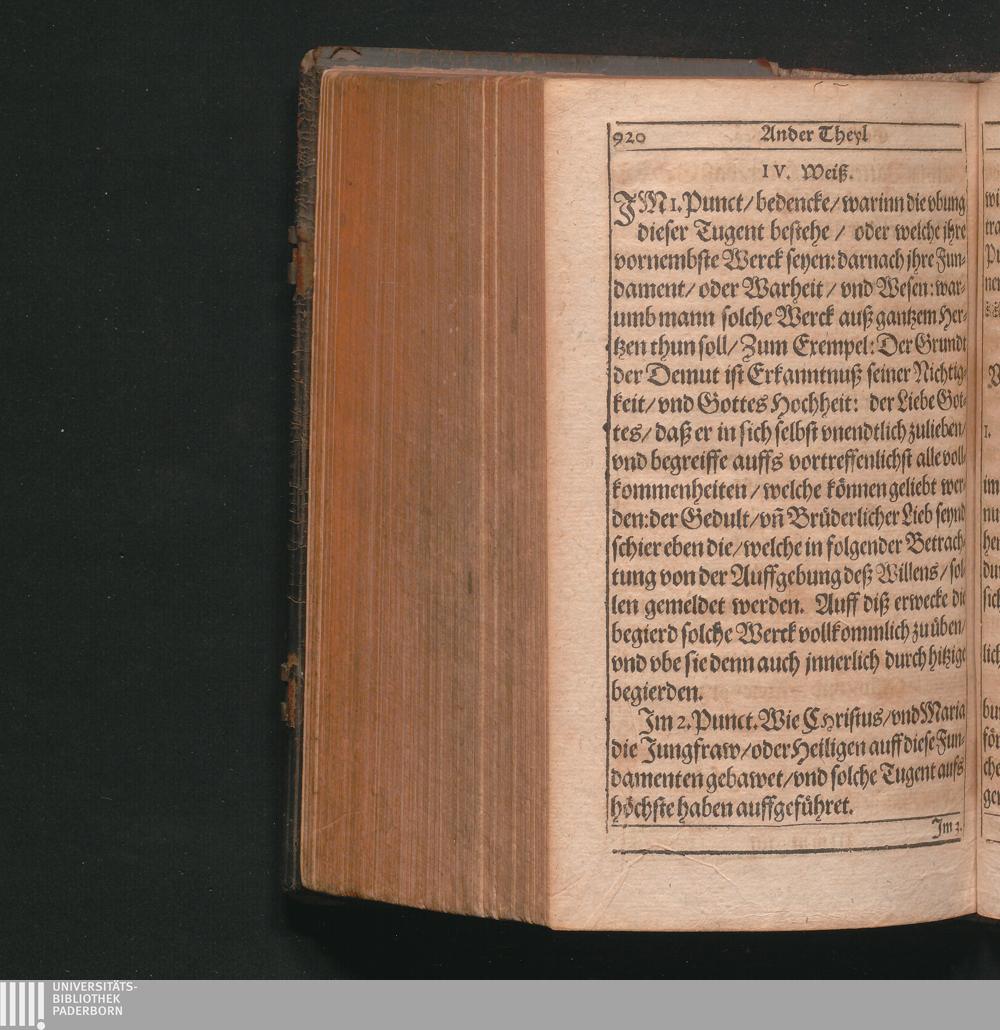 920 Ander Theyl
IV. Weiß.
JM 1. Punct/ bedencke/ warinn die vbung
dieser Tugent bestehe / oder welche jhre
vornembste Werck seyen: darnach jhre Fun-
dament/ oder Warheit / vnd Wesen: war-
umb mann solche Werck auß gantzem Her-
tzen thun soll/ Zum Exempel: Der Grundt
der Demut ist Erkanntnuß seiner Nichtig-
keit/ vnd Gottes Hochheit: der Liebe Got-
tes/ daß er in sich selbst vnendtlich zulieben/
vnd begreiffe auffs vortreffenlichst alle voll-
kommenheiten / welche können geliebt wer-
den: der Gedult/ vñ Brüderlicher Lieb seynd
schier eben die/ welche in folgender Betrach-
tung von der Auffgebung deß Willens/ sol-
len gemeldet werden. Auff diß erwecke die
begierd solche Werck vollkommlich zu üben/
vnd vbe sie denn auch jnnerlich durch hitzige
begierden.
Jm 2. Punct. Wie Christus/ vnd Maria
die Jungfraw/ oder Heiligen auff diese Fun-
damenten gebawet/ vnd solche Tugent aufs
höchste haben auffgeführet.
Jm 3.
UNIVERSITÄTS-
BIBLIOTHEK
PADERBORN